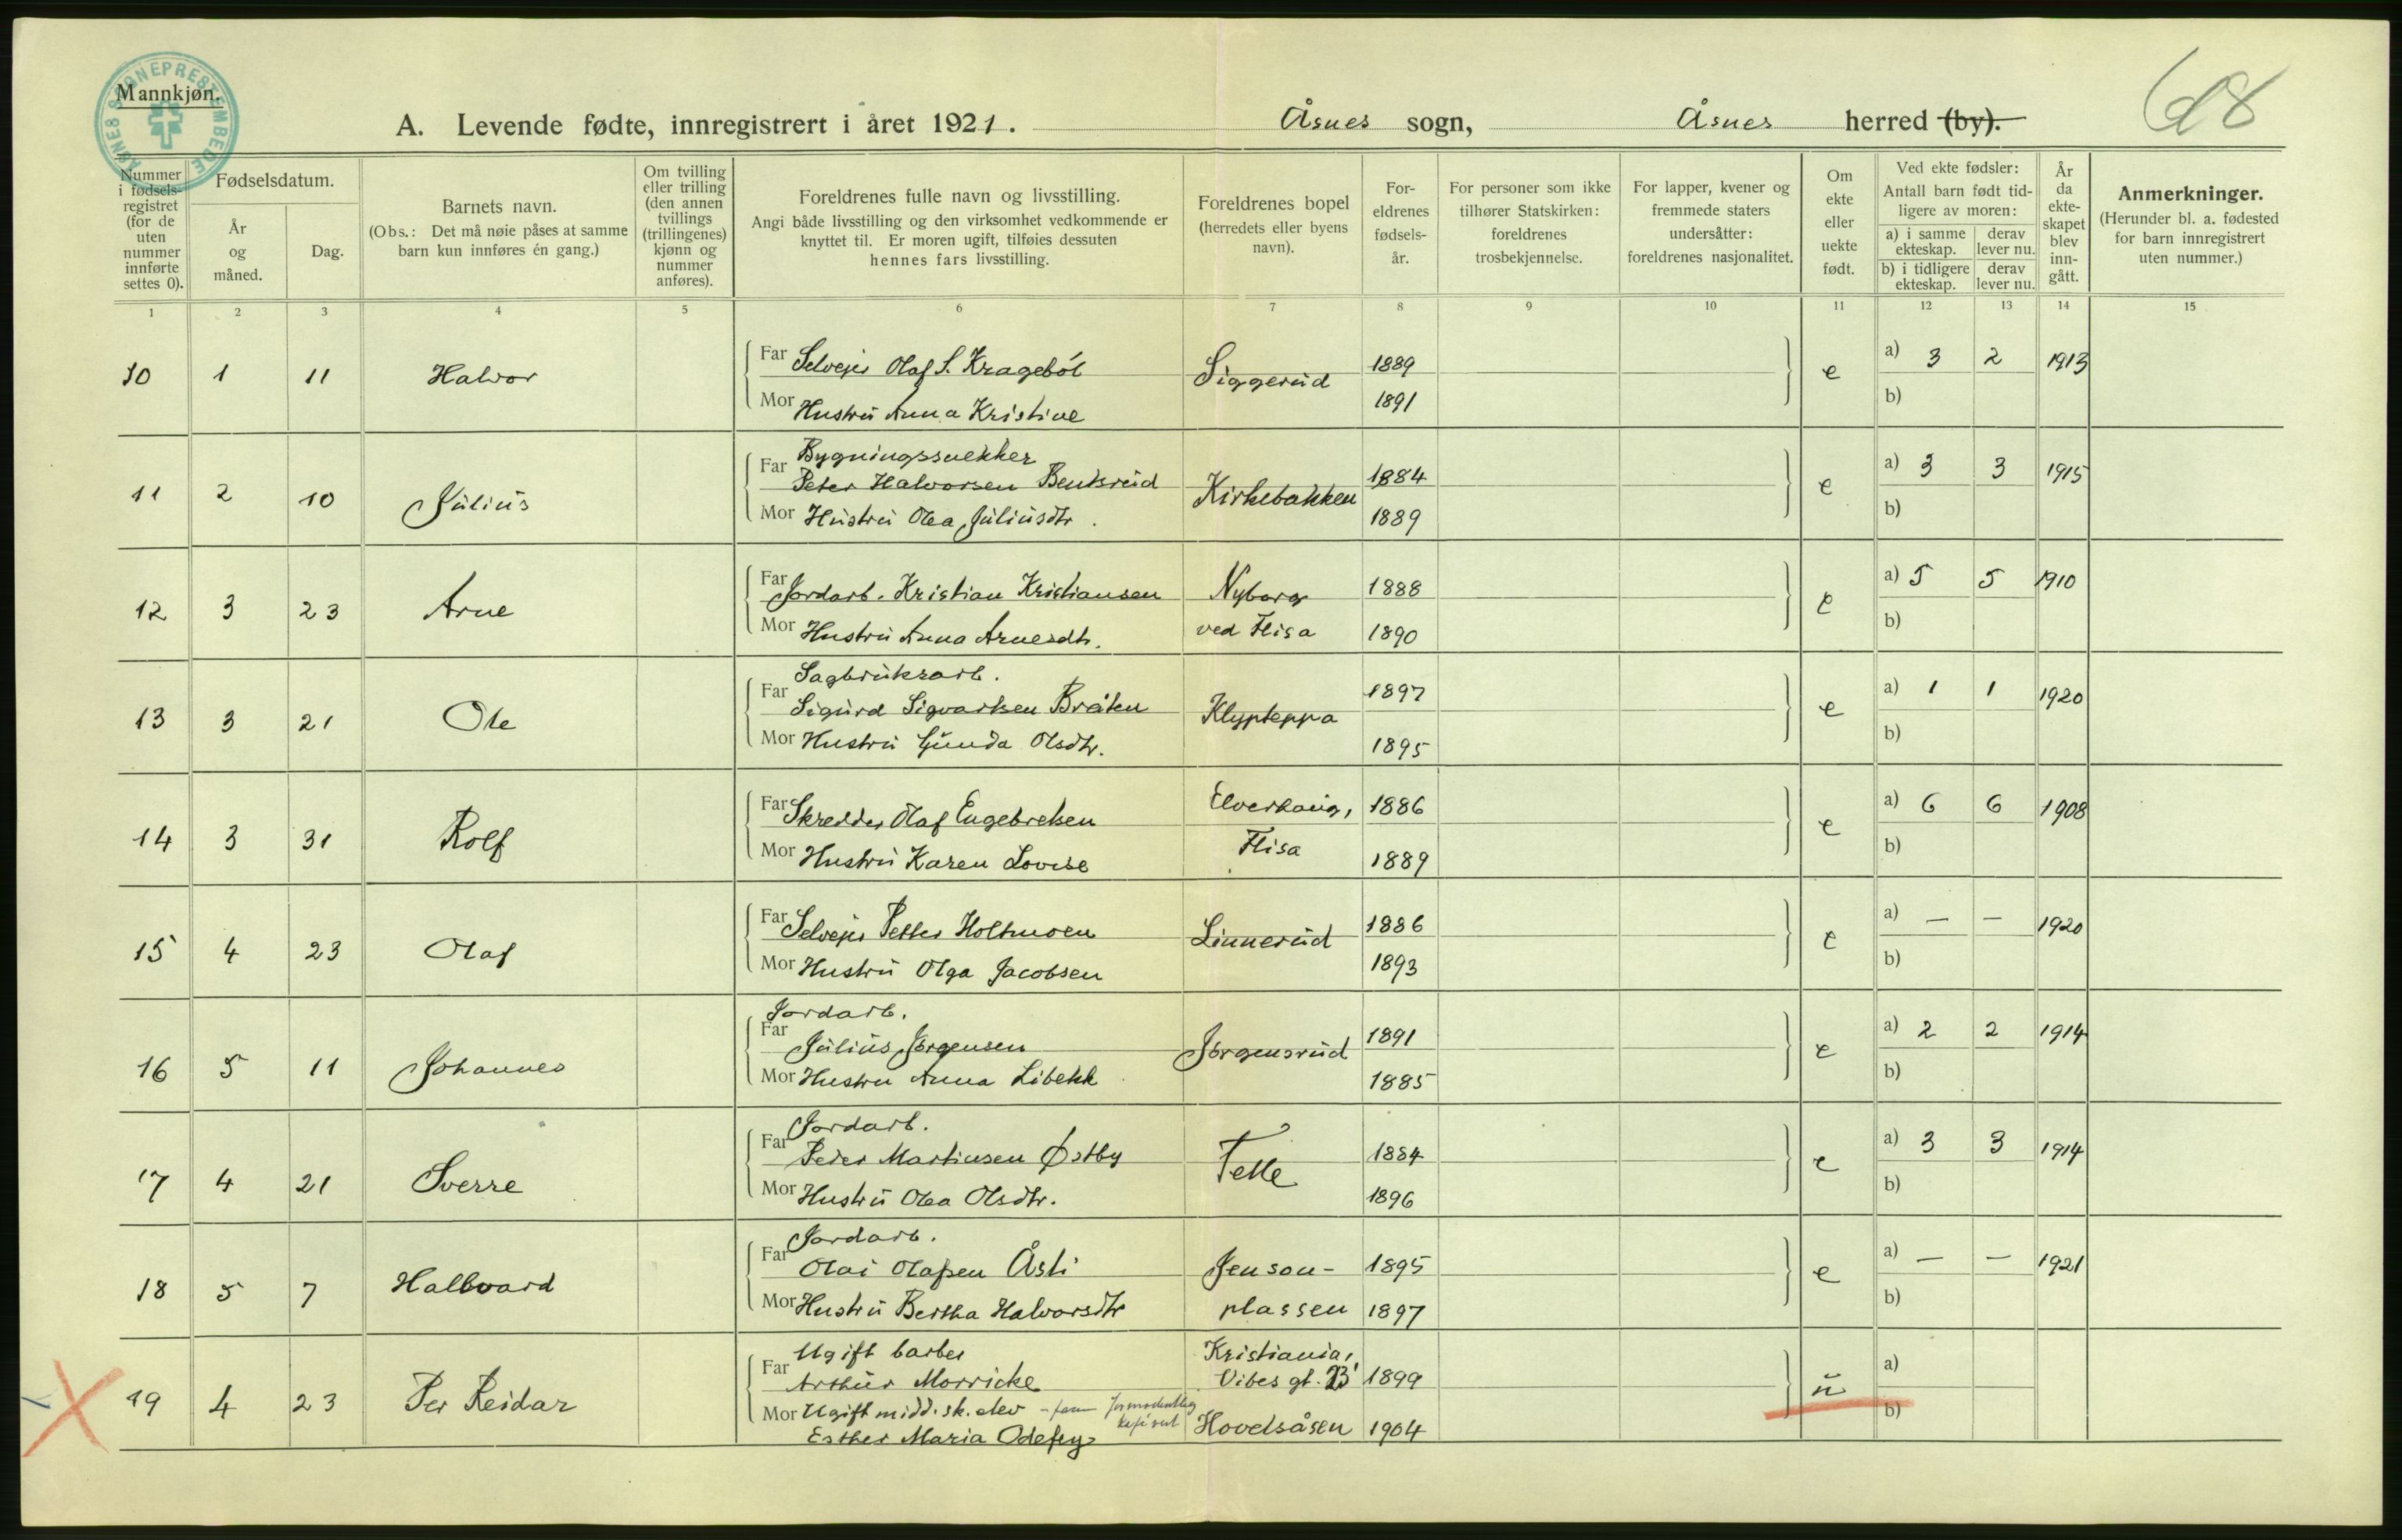 ÅSNES SOGNEPRESTEMBEDE
Mannkjøn.
A. Levende fødte, innregistrert i året 1921. Åsnes sogn, Åsnes herred (by).
68
Nummer i fødsels-registret (for de uten nummer innførte settes 0).
Fødselsdatum.
År og måned.
Dag.
Barnets navn.
(Obs.: Det må nøie påses at samme barn kun innføres én gang.)
Om tvilling eller trilling (den annen tvillings (trillingenes) kjønn og nummer anføres).
Foreldrenes fulle navn og livsstilling.
Angi både livsstilling og den virksomhet vedkommende er knyttet til. Er moren ugift, tilføies dessuten hennes fars livsstilling.
Foreldrenes bopel (herredets eller byens navn).
For-eldrenes fødsels-år.
For personer som ikke tilhører Statskirken: foreldrenes trosbekjennelse.
For lapper, kvener og fremmede staters undersåtter: foreldrenes nasjonalitet.
Om ekte eller uekte født.
Ved ekte fødsler:
Antall barn født tid-ligere av moren:
a) i samme ekteskap. derav lever nu.
b) i tidligere ekteskap. derav lever nu.
År da ekte-skapet blev inn-gått.
Anmerkninger.
(Herunder bl. a. fødested for barn innregistrert uten nummer.)
1 2 3 4 5 6 7 8 9 10 11 12 13 14 15
10 1 11 Halvor Far Selvejer Olaf S. Kragebøl Siggerud 1889 e a) 3 2 1913
Mor Hustru Anna Kristine 1891 b)
Bygningssnekker
11 2 10 Julius Far Peter Halvorsen Benksrud Kirkebakken 1884 e a) 3 3 1915
Mor Hustru Olea Juliusdtr. 1889 b)
12 3 23 Arne Far Jordarb. Kristian Kristiansen Nyborg 1888 e a) 5 5 1910
Mor Hustru Anna Arnesdtr. ved Flisa 1890 b)
Sagbruksarb.
13 3 21 Ole Far Sigurd Sigvartsen Bråten Klypteppa 1897 e a) 1 1 1920
Mor Hustru Gunda Olsdtr. 1895 b)
14 3 31 Rolf Far Skredder Olaf Engebretsen Elverhaug, 1886 e a) 6 6 1908
Mor Hustru Karen Lovise Flisa 1889 b)
15 4 23 Olaf Far Selvejer Petter Holtmoen Linnerud 1886 e a) — — 1920
Mor Hustru Olga Jacobsen 1893 b)
Jordarb.
16 5 11 Johannes Far Julius Jørgensen Jørgensrud 1891 e a) 2 2 1914
Mor Hustru Anna Libekk 1885 b)
Jordarb.
17 4 21 Sverre Far Peder Martinsen Østby Telle 1884 e a) 3 3 1914
Mor Hustru Olea Olsdtr. 1896 b)
Jordarb.
18 5 7 Hallvard Far Olai Olafsen Åsli Jenson- 1895 e a) — — 1921
Mor Hustru Bertha Halvorsdtr plassen 1897 b)
Ugift barber Kristiania,
19 4 23 Per Reidar Far Arthur Morricke Vibes gt. 23 1899 u a)
Mor Ugift midd. sk. elev - formodentlig b)
Esther Maria Hovelsåsen 1904